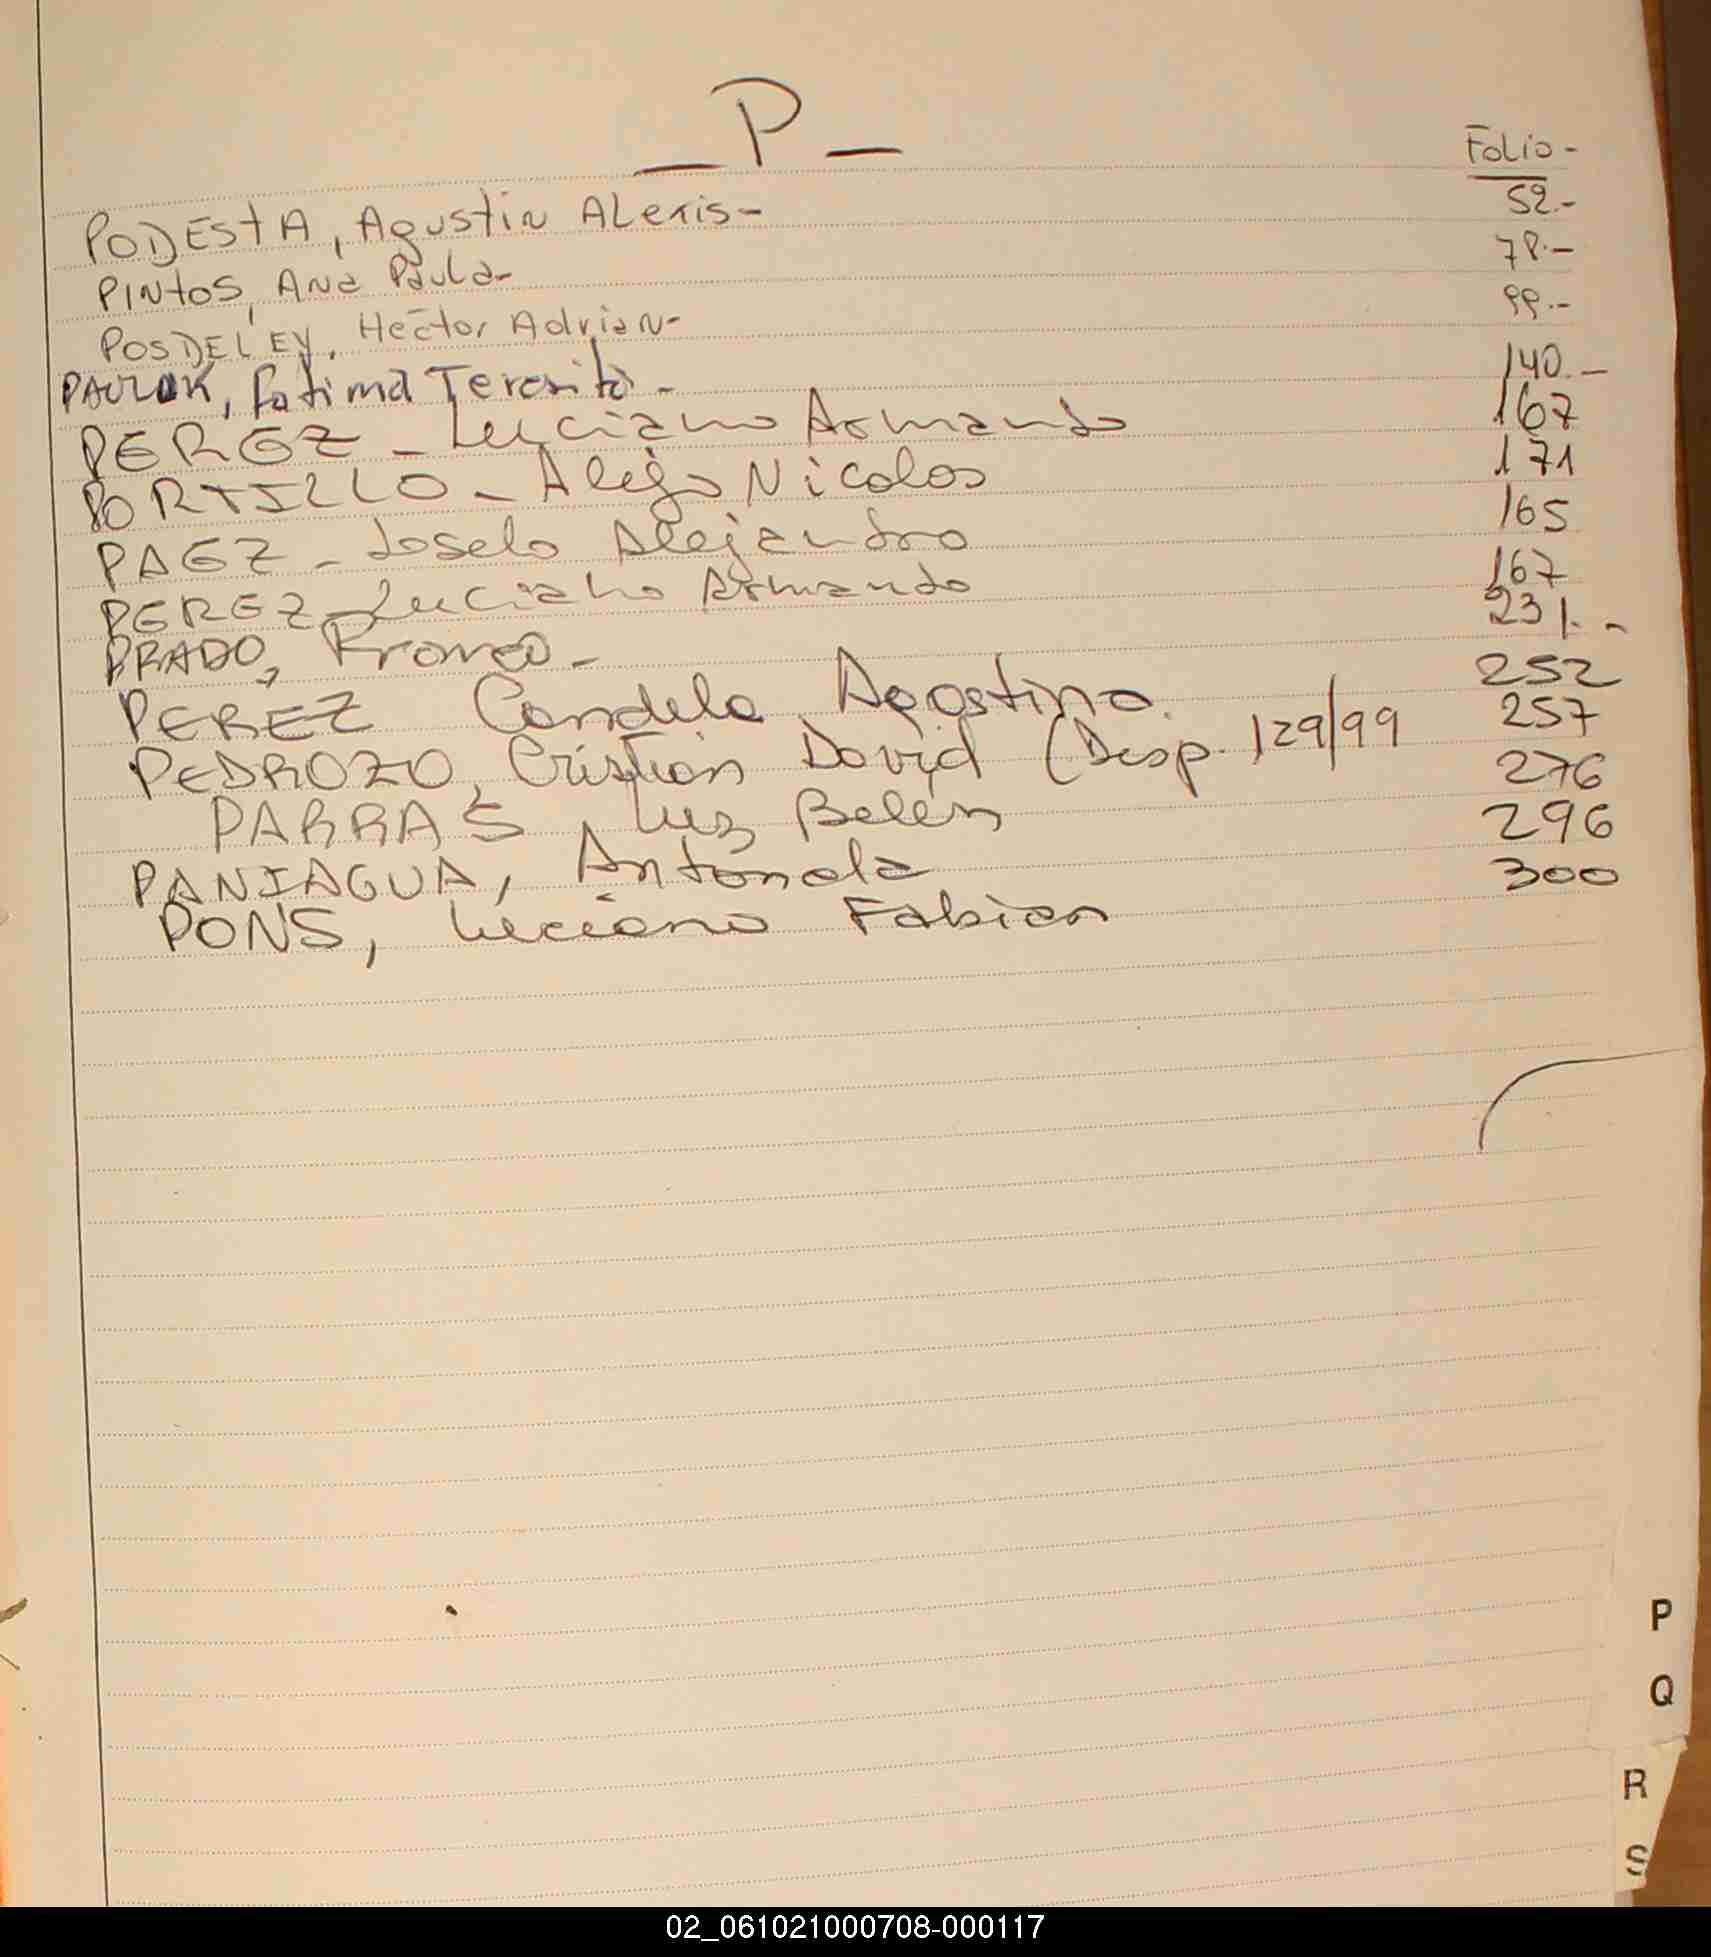 _P_
Folio-
PODEStA, Agustin ALexis- 52.-
PINtOS, Ana Paula- 78.-
POSDELEY, Hector Adrian- 99.-
PAULUK, Fatima Teresita- 140.-
PEREZ - Luciano Armando 167
PORTILLO - Alejo Nicolas 171
PAEZ - Joselo Alejandro 165
PEREZ - Luciano Armando 167
PRADO, Franco- 231.-
PEREZ Candela Agostina. 252
PEDROZO, Cristian David (Desp. 129/99 257
PARRAS, Luz Belén 276
PANIAGUA, Antonela 296
PONS, Luciano Fabian 300
P
Q
R
S
02_061021000708-000117